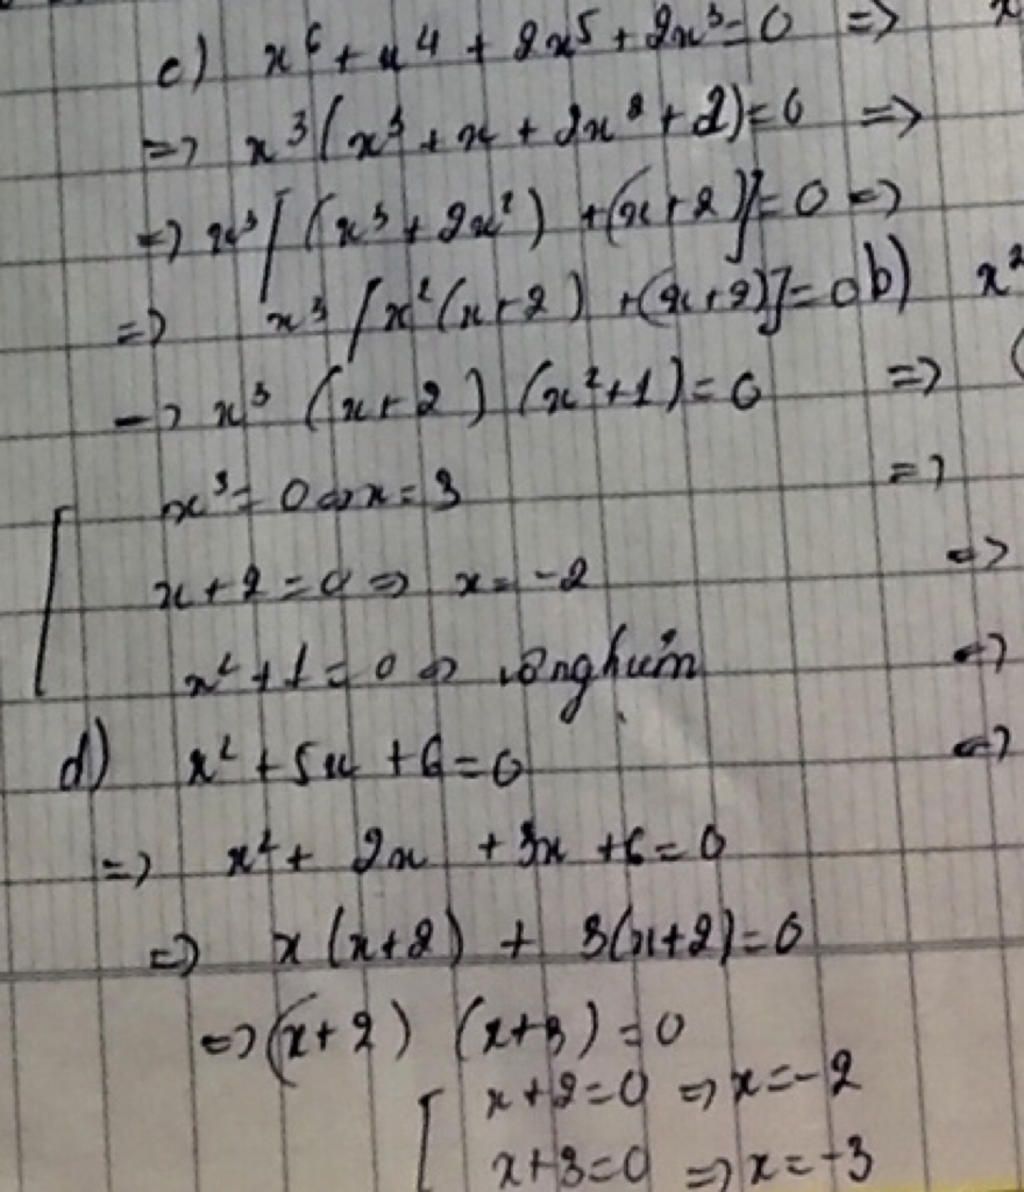 c) x⁶ + x⁴ + 2x⁵ + 2x³ = 0 =>
=> x³(x³ + x + 2x² + 2) = 0 =>
=> x³[(x³ + 2x²) + (x + 2)] = 0 =>
=> x³[x²(x + 2) + (x + 2)] = 0 b) x²
=> x³ (x + 2) (x² + 1) = 0 => (
x³ = 0 => x = 3 =>
x + 2 = 0 => x = -2 =>
x² + 1 = 0 => vô nghiệm =>
d) x² + 5x + 6 = 0 =>
=> x² + 2x + 3x + 6 = 0
=> x(x + 2) + 3(x + 2) = 0
=> (x + 2) (x + 3) = 0
x + 2 = 0 => x = -2
x + 3 = 0 => x = -3